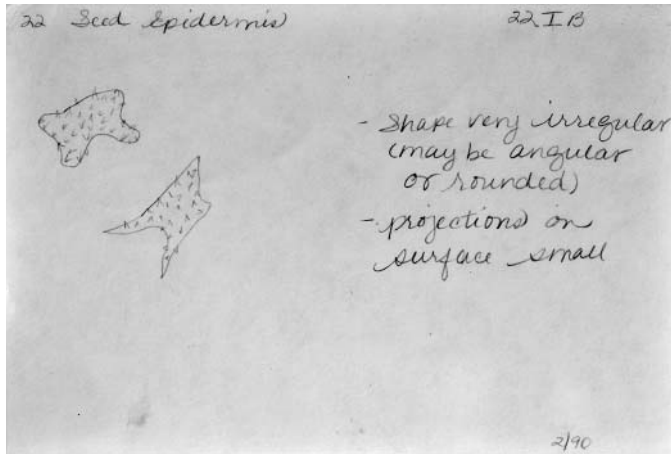 22 Seed Epidermis
22 I B
- Shape very irregular
(may be angular
or rounded)
- projections on
surface small
2/90